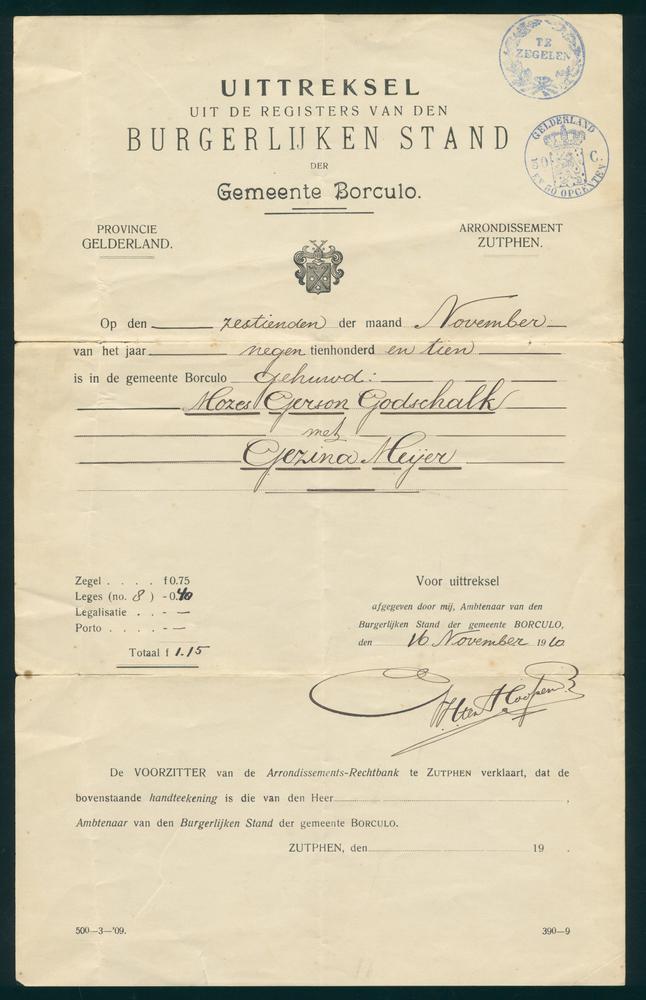 TE
ZEGELEN
UITTREKSEL
UIT DE REGISTERS VAN DEN
BURGERLIJKEN STAND
DER
Gemeente Borculo.
GELDERLAND
50 C.
EN 50 OPCENTEN
PROVINCIE
GELDERLAND.
ARRONDISSEMENT
ZUTPHEN.
Op den zestienden der maand November
van het jaar negen tienhonderd en tien
is in de gemeente Borculo gehuwd:
Mozes Gerson Godschalk
met
Gezina Meijer
Zegel . . . . f 0.75
Leges (no. 8 ) - 0.40
Legalisatie . . - —
Porto . . . . - —
Totaal f 1.15
Voor uittreksel
afgegeven door mij, Ambtenaar van den
Burgerlijken Stand der gemeente BORCULO,
den 16 November 1910
De VOORZITTER van de Arrondissements-Rechtbank te ZUTPHEN verklaart, dat de
bovenstaande handteekening is die van den Heer ,
Ambtenaar van den Burgerlijken Stand der gemeente BORCULO.
ZUTPHEN, den 19 .
500—3—'09.
390—9